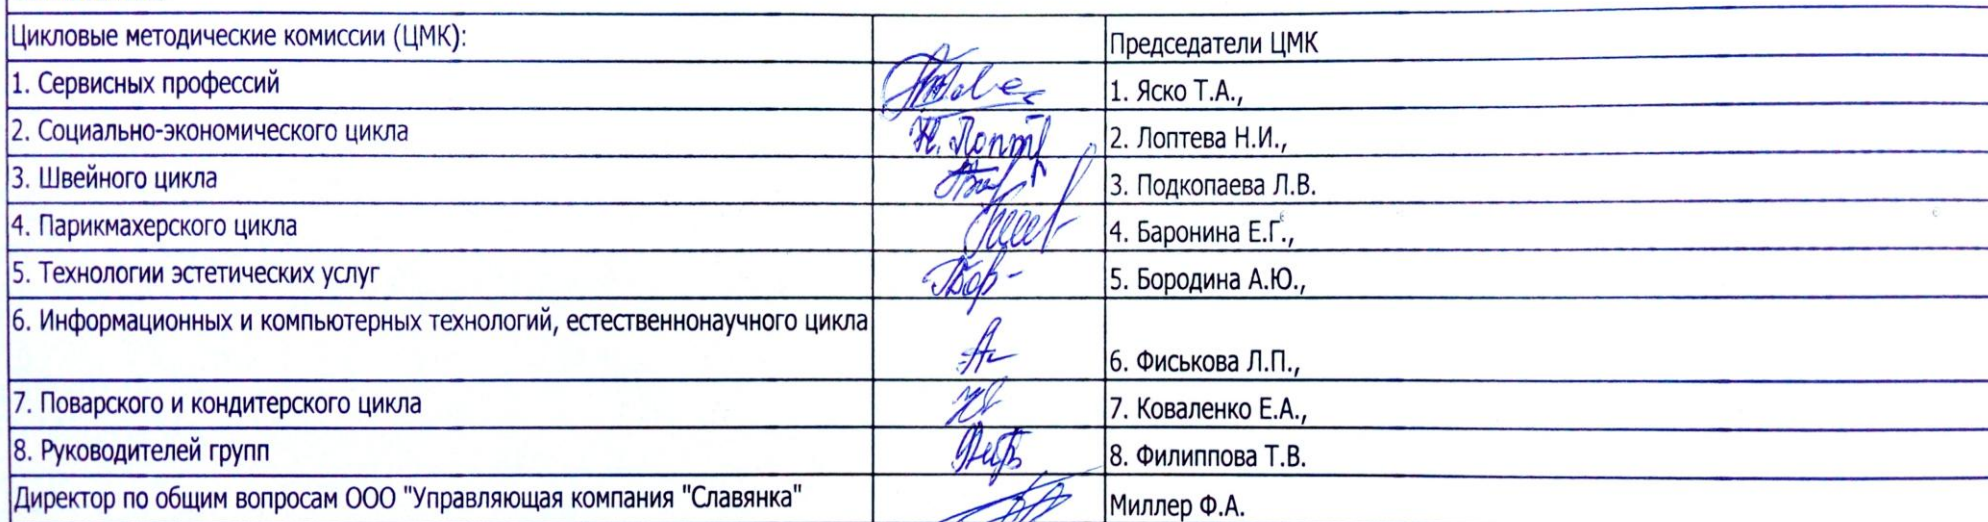 Цикловые методические комиссии (ЦМК): Председатели ЦМК
1. Сервисных профессий 1. Яско Т.А.,
2. Социально-экономического цикла Н. Лопт 2. Лоптева Н.И.,
3. Швейного цикла 3. Подкопаева Л.В.
4. Парикмахерского цикла 4. Баронина Е.Г.,
5. Технологии эстетических услуг Бор- 5. Бородина А.Ю.,
6. Информационных и компьютерных технологий, естественнонаучного цикла
6. Фиськова Л.П.,
7. Поварского и кондитерского цикла 7. Коваленко Е.А.,
8. Руководителей групп 8. Филиппова Т.В.
Директор по общим вопросам ООО "Управляющая компания "Славянка" Миллер Ф.А.